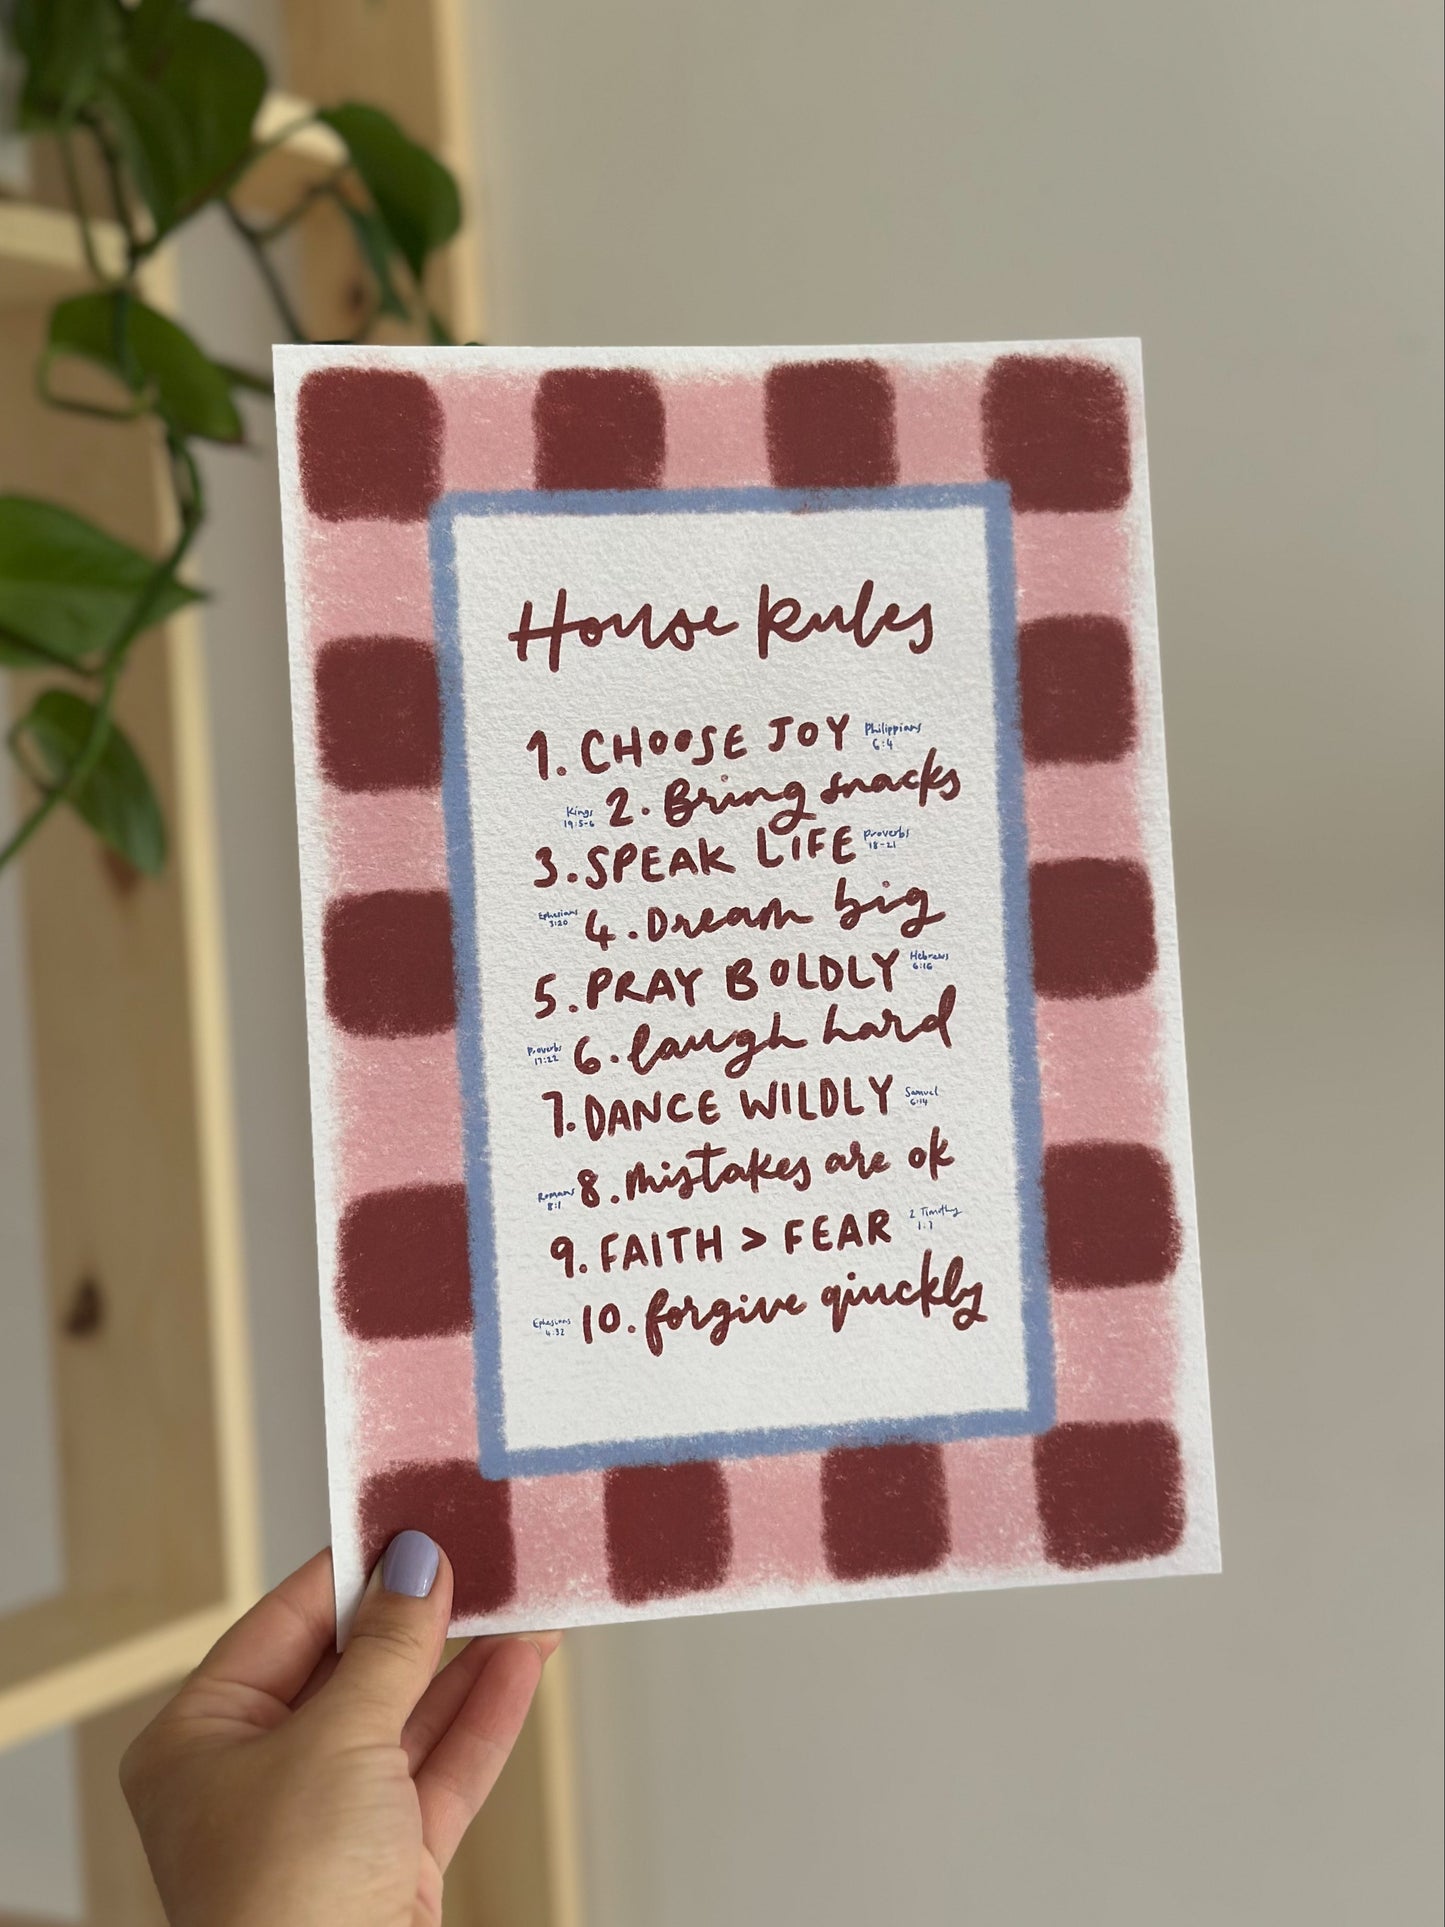 House Rules
1. CHOOSE JOY Philippians
6:4
Kings
19:5-6
2. Bring snacks
3. SPEAK LIFE Proverbs
18-21
Ephesians
3:20
4. Dream big
5. PRAY BOLDLY Hebrews
6:16
Proverbs
17:22
6. laugh hard
7. DANCE WILDLY Samuel
6:14
Romans
8:1
8. mistakes are ok
9. FAITH > FEAR 2 Timothy
1:7
Ephesians
4:32
10. forgive quickly